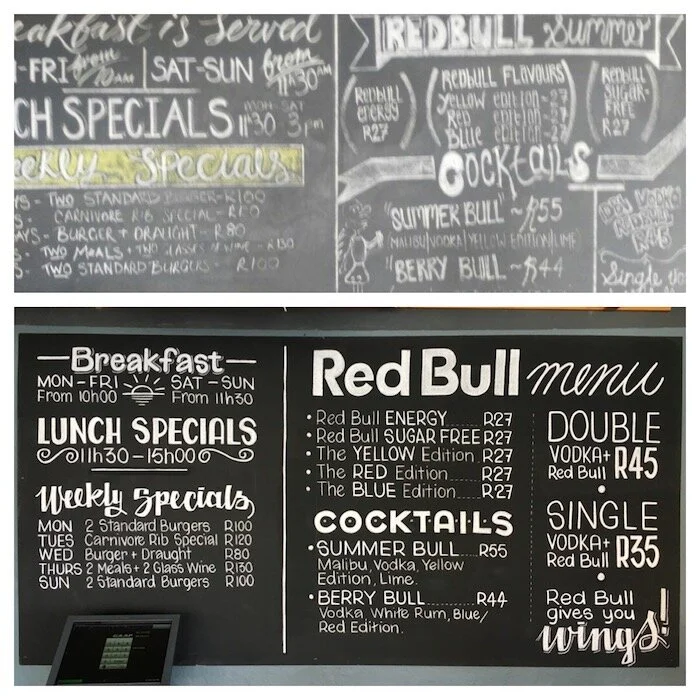 eakfast is Served
-FRI from 10AM | SAT-SUN from 11H30AM
CH SPECIALS MON-SAT 11H30 3pm
eekly Specials
YS - TWO STANDARD BURGER - R100
CARNIVORE RIB SPECIAL -
AYS - BURGER + DRAUGHT - R80
TWO MEALS + TWO GLASSES OF WINE - R130
TWO STANDARD BURGERS - R100
REDBULL Summer
Redbull energy R27
(REDBULL FLAVOURS)
Yellow edition - 27
Red edition - 27
Blue edition - 27
Redbull SUGAR-FREE R27
COCKTAILS
"SUMMER BULL" ~ R55
MALIBU|VODKA|YELLOW EDITION|LIME
"BERRY BULL" ~ R44
DBL VODKA REDBULL R45
Single
Breakfast
MON - FRI SAT - SUN
From 10h00 From 11h30
LUNCH SPECIALS
11h30 - 15h00
Weekly Specials
MON 2 Standard Burgers R100
TUES Carnivore Rib Special R120
WED Burger + Draught R80
THURS 2 Meals + 2 Glass Wine R130
SUN 2 Standard Burgers R100
Red Bull menu
• Red Bull ENERGY R27
• Red Bull SUGAR FREE R27
• The YELLOW Edition R27
• The RED Edition R27
• The BLUE Edition R27
COCKTAILS
• SUMMER BULL R55
Malibu, Vodka, Yellow
Edition, Lime.
• BERRY BULL R44
Vodka White Rum, Blue/
Red Edition.
DOUBLE
VODKA+
Red Bull R45
SINGLE
VODKA+
Red Bull R35
Red Bull
gives you
wings!